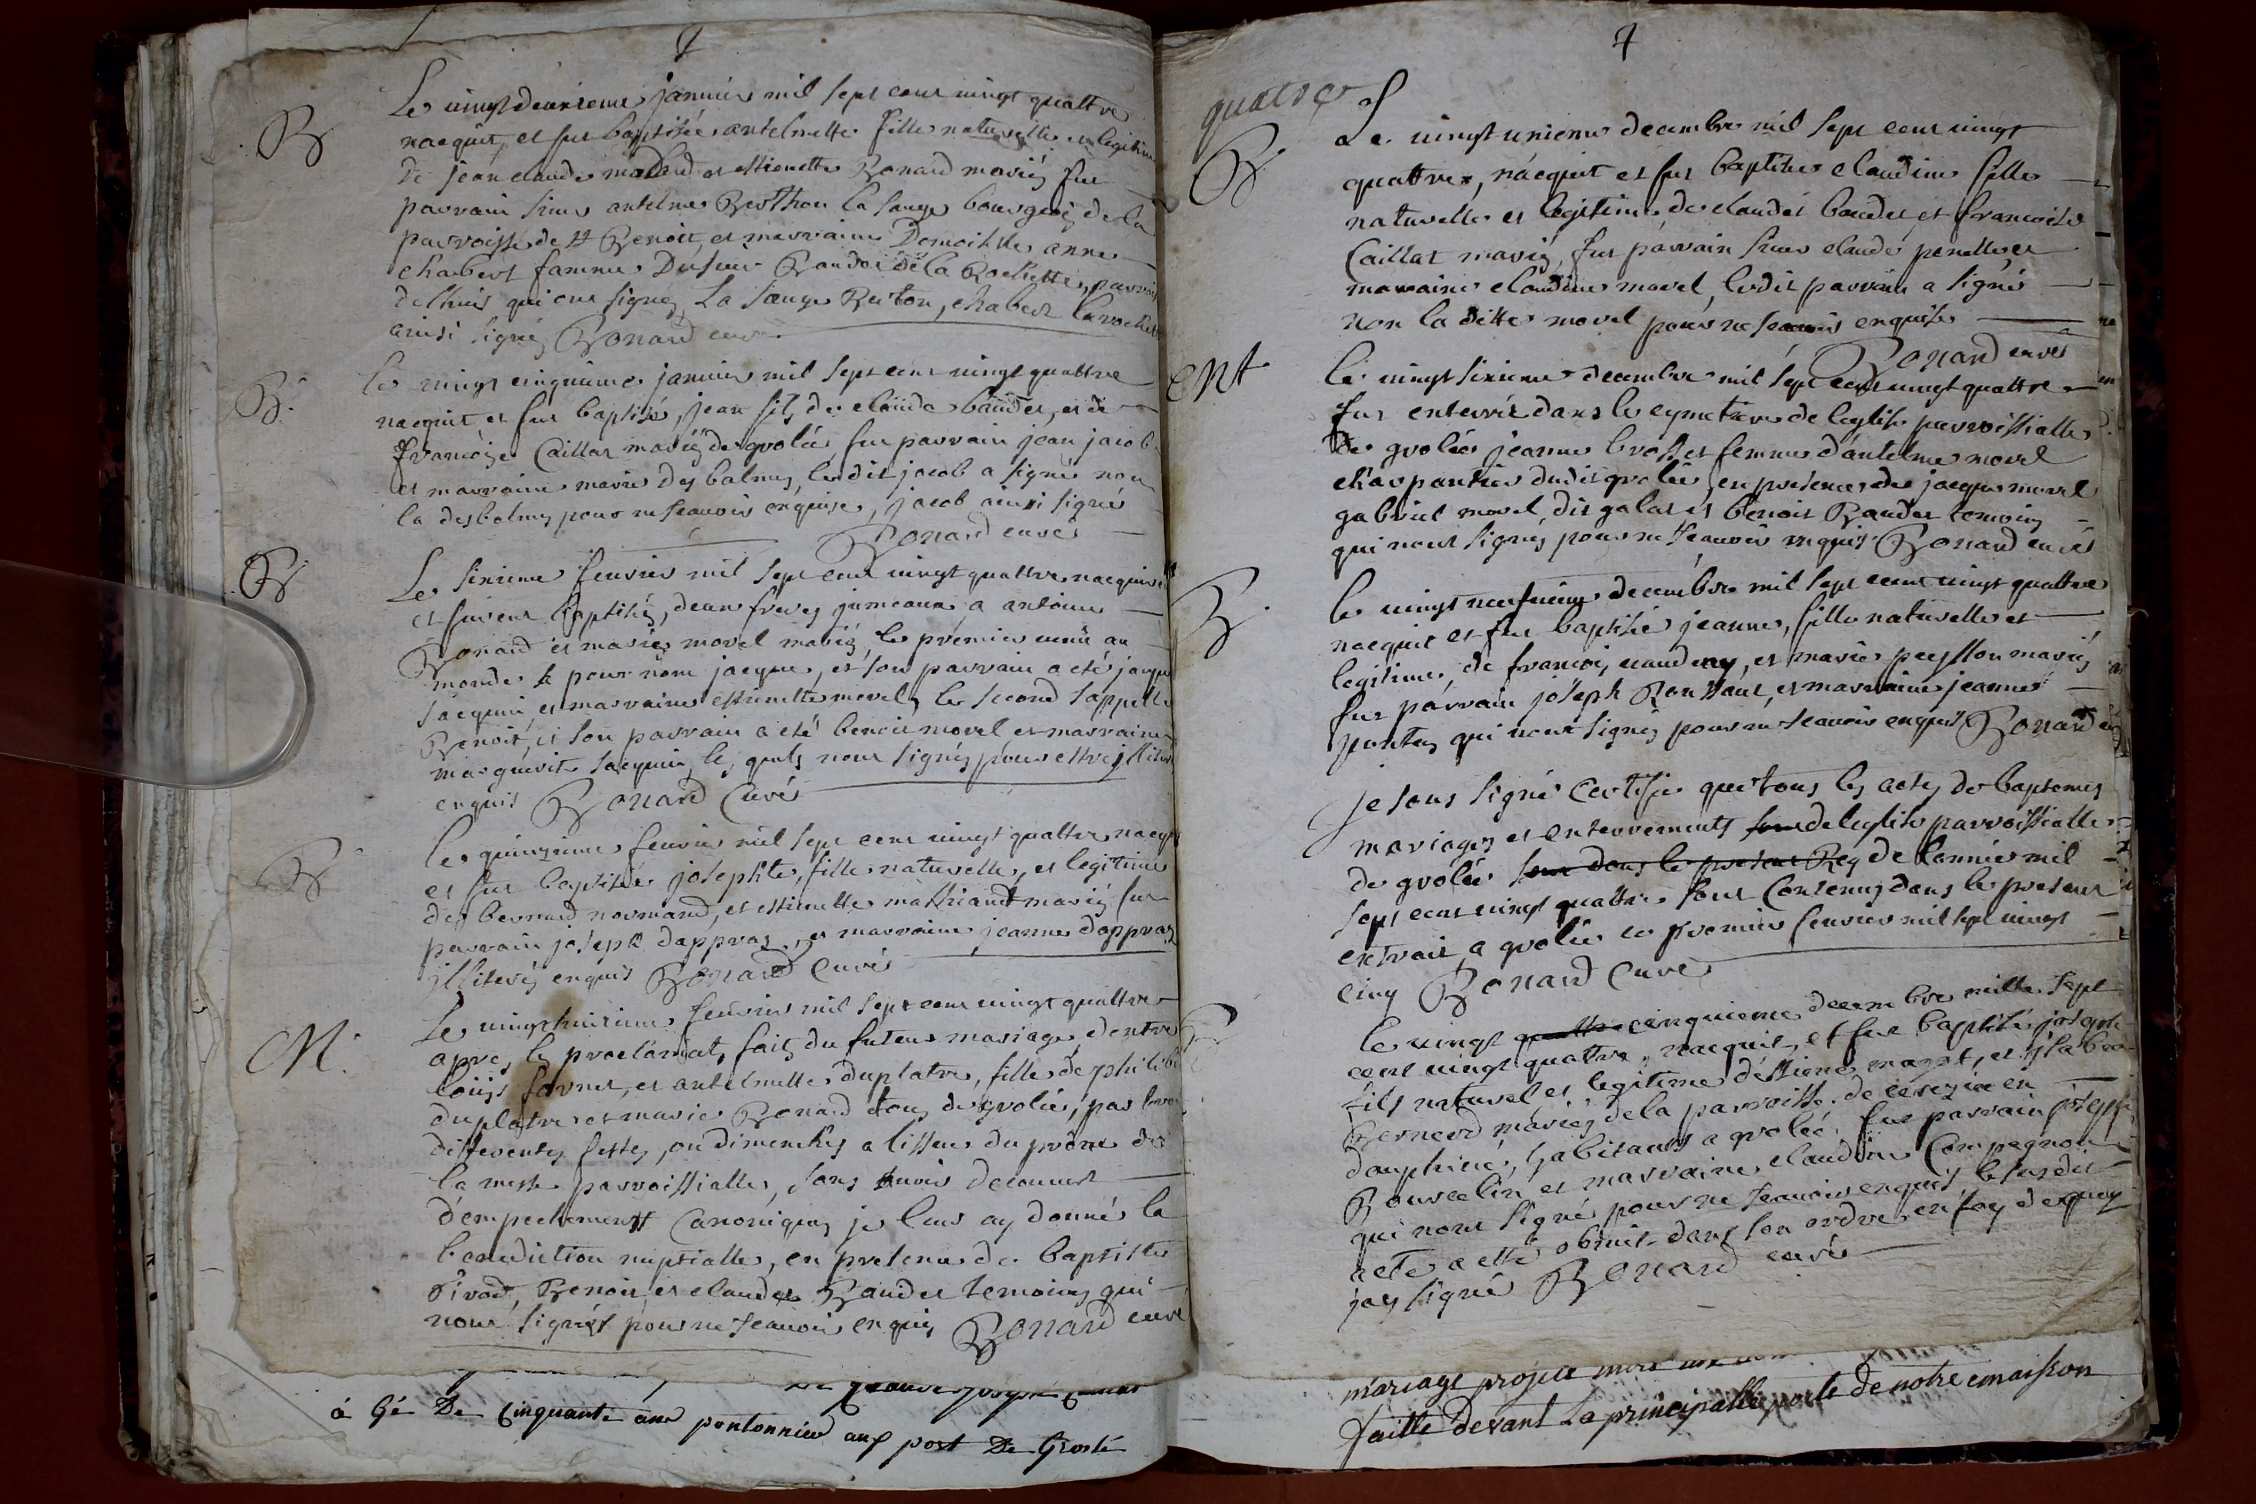 B
Le vingt deuxieme janvier mil sept cent vingt quattre
nacquit, et fut baptisée antelmette fille naturelle et legitime
de jean claude et ettienette Bonard mariés fut
parrain sieur antelme Berthon la sauge bourgeois de la
parroisse de St Benoit, et marraine Demoiselle anne
chabert famme Du sieur Baudot de la Rochette, parroisse
delhuis qui ont signez La sauge Berton, chabert larochette
ainsi signez Bonard curé
B.
le vingt cinquieme janvier mil sept cent vingt quattre
nacquit et fut baptisé, jean fils de claude baudet, et de
françoise Caillat mariés de grolée fut parrain jean jacob
et marraine marie des balmes, ledit jacob a signé non
la desbalmes pour ne scavoir enquise, jacob ainsi signés
Bonard curé
B
Le sixieme fevrier mil sept cent vingt quattre nacquirent
et furent baptisés, deux freres jumeaux a antoine
Bonard et marie morel mariés, le premier venü au
monde a pour nom jacque, et son parrain a eté jacque
jacquin et marraine ettienette morel, le second sappelle
Benoit, et son parrain a eté benoit morel et marraine
marguerite jacquin, les quels n'ont signés pour estre illiterés
enquis Bonard Curé
B
le quinzieme fevrier mil sept cent vingt quattre nacquit
et fut baptisée josephte, fille naturelle, et legitime
de bernard normand, et ettienette mariés fut
parrain joseph dappraz, et marraine jeanne dappraz
illiterés enquis Bonard Curé
M.
Le vingthuitieme fevrier mil sept cent vingt quattre
apres les proclamat. faits du futeur mariage d'entre
louis favret, et antelmette duplatre, fille de philibert
duplatre et marie Bonard tous de grolée, par trois
differentes festes, ou dimenches a lissue du prône de
la messe parroissialle, sans avoir decouvert
d'empechement Canoniques je leur ay donné la
benediction nuptialle, en presence de baptiste
Pivod, Benoit, et claude Baudet temoins qui
n'ont signést pour ne scavoir enquis Bonard curé
à Gé De Cinquante ans pontonnier aux port De Groslé
4
quatre
B
Le vingt unieme decembre mil sept cent vingt
quattre, nacquit et fut baptisée claudine fille
naturelle et legitime de claude baudet et francoise
Caillat mariés, fut parrain sieur claude penelle et
marraine claudine morel, ledit parrain a signé
non la ditte morel pour ne scavoir enquise
Bonard curé
ent
le vingt sixieme decembre mil sept cent vingt quattre
fut enterrée dans le cymetiere de leglise parroissialle
de grolée jeanne brosset femme d'antelme morel
charpantier dudit grolée, en presence de jacque morel
gabriel morel, dit galat et benoit Baudet temoins
qui n'ont signés pour ne scavoir enquis Bonard curé
B.
le vingt neufvieme decembre mil sept cent vingt quattre
nacquit et fut baptisée jeanne, fille naturelle et
legitime, de francois, et marie peysson mariés
fut parrain joseph, et marraine jeanne
pontus qui n'ont signés pour ne scavoir enquis Bonard curé
je sous signé Certifie que tous les actes de baptemes
mariages et enterrements sont de leglise parroissialle
de grolée sont dans le present Reg de lannée mil
sept cent vingt quattre sont Contenus dans le present
extrait a grolée ce premier fevrier mil sept vingt
cinq Bonard Curé
B
le vingt quattre cinquieme decembre mille sept
cent vingt quattre, nacquit, et fut baptisé joseph
fils naturel et legitime d'ettiene mazot, et
Bernard mariés de la parroisse de en
dauphiné, habitants a grolée, fut parrain joseph
Bourcelin et marraine claudine Compagnon
qui n'ont signé pour ne scavoir enquis, le susdit
acte a etté obmit dans son ordre en foy de quoy
jay signé Bonard curé
mariage projeté
faitte devant La principalle porte de notre